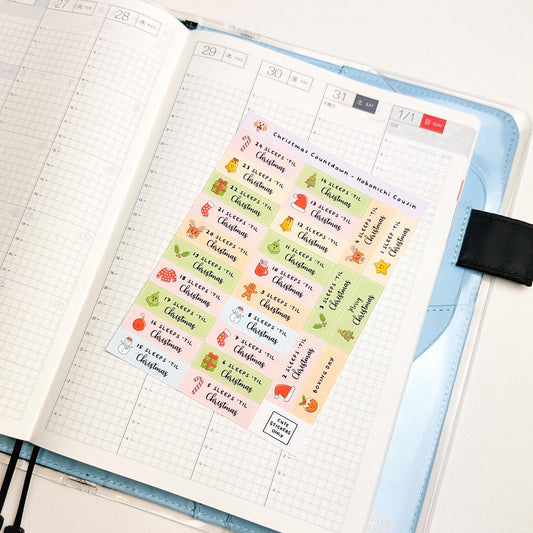 27 火 TUE
28 水 WED
29 木 THU
30 金 FRI
31 土 SAT
1/1 日 SUN
元日
Christmas Countdown - Hobonichi Cousin
24 SLEEPS 'TIL
Christmas
23 SLEEPS 'TIL
Christmas
22 SLEEPS 'TIL
Christmas
21 SLEEPS 'TIL
Christmas
20 SLEEPS 'TIL
Christmas
19 SLEEPS 'TIL
Christmas
18 SLEEPS 'TIL
Christmas
17 SLEEPS 'TIL
Christmas
16 SLEEPS 'TIL
Christmas
15 SLEEPS 'TIL
Christmas
14 SLEEPS 'TIL
Christmas
13 SLEEPS 'TIL
Christmas
12 SLEEPS 'TIL
Christmas
11 SLEEPS 'TIL
Christmas
10 SLEEPS 'TIL
Christmas
9 SLEEPS 'TIL
Christmas
8 SLEEPS 'TIL
Christmas
7 SLEEPS 'TIL
Christmas
6 SLEEPS 'TIL
Christmas
5 SLEEPS 'TIL
Christmas
4 SLEEPS 'TIL
Christmas
1 SLEEP 'TIL
Christmas
3 SLEEPS 'TIL
Christmas
Merry
Christmas
2 SLEEPS 'TIL
Christmas
BOXING DAY
CUTE
STICKERS
ONLY